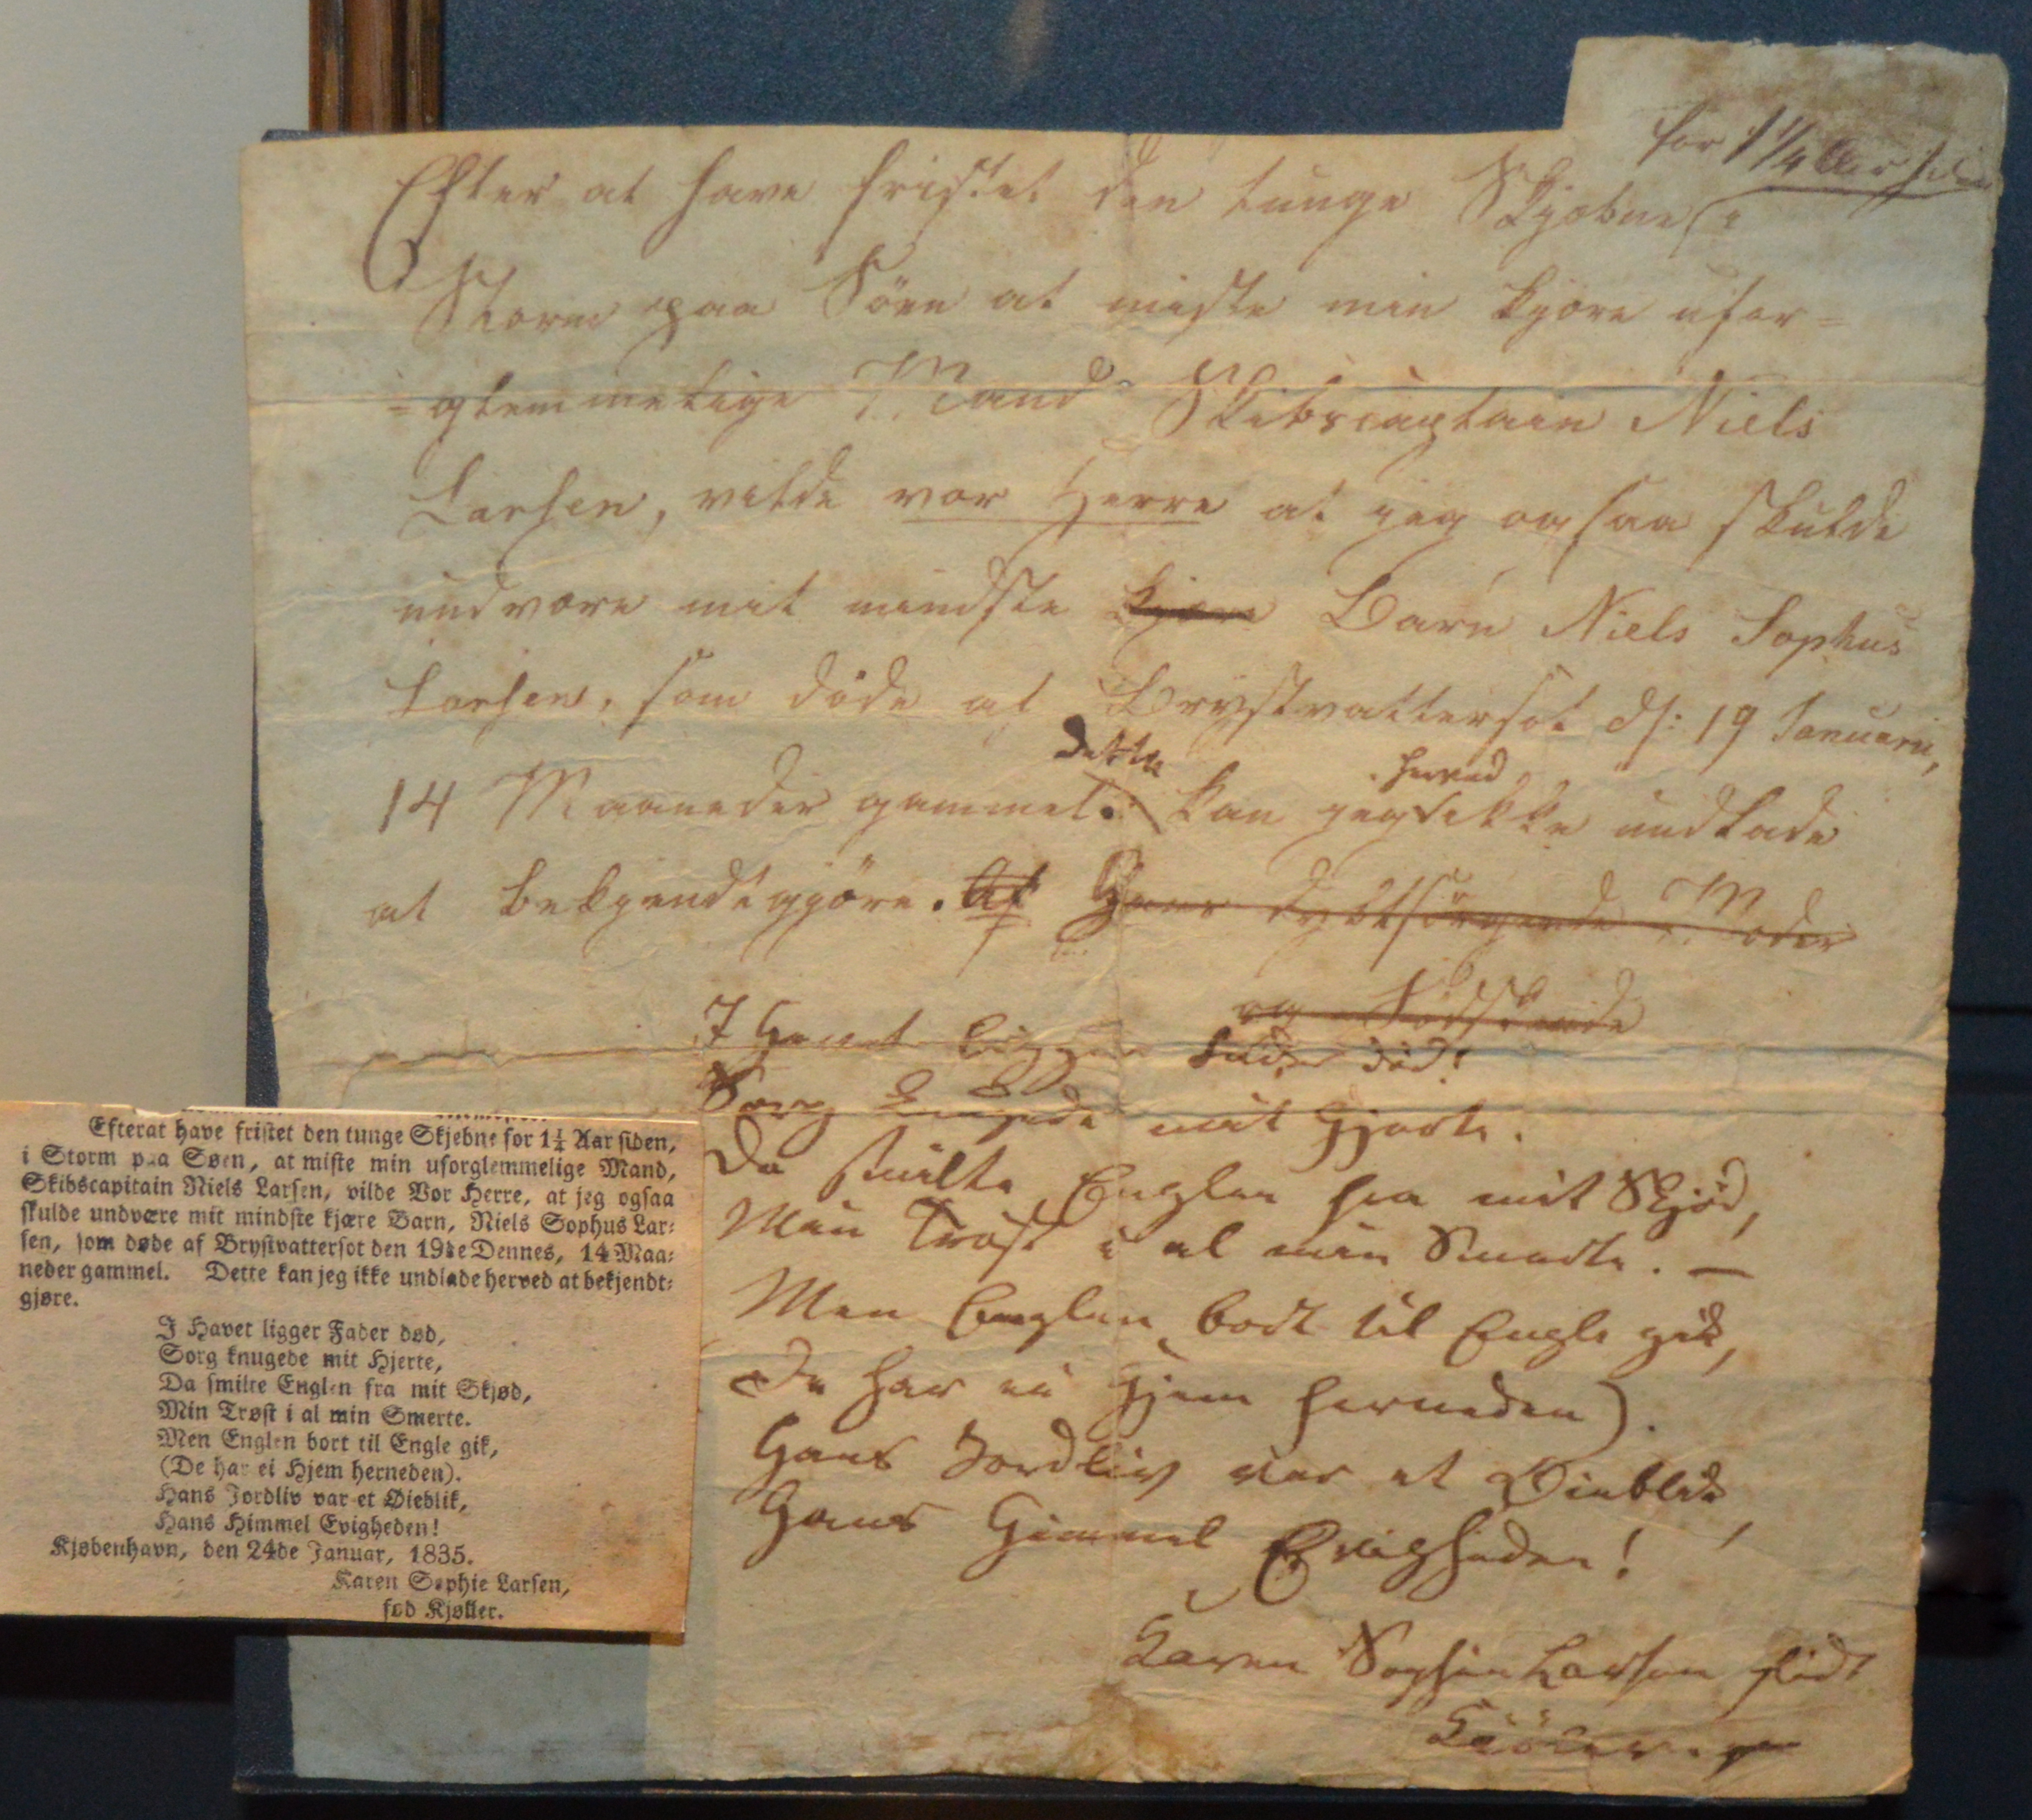 for 1 1/4 Aar siden
Efter at have fristet den tunge Skjæbne i
Storm paa Söen at miste min kjære ufor=
=glemmelige Mand Skibscaptain Niels
Larsen, vilde vor Herre at jeg ogsaa skulde
undvære mit mindste kjære Barn Niels Sophus
Larsen, som döde af Brystvattersot d: 19 Januarii,
14 Maaneder gammel. dette kan jeg herved ikke undlade
at bekjendtgjöre. Af Hans dybtsörgende Moder
og Södskende
I Havet ligger Fader död!
Sorg knugede mit Hjerte.
Da smilte Englen fra mit Skjød,
Min Trøst i al min Smerte. —
Men Englen bort til Engle gik,
De har ei Hjem herneden).
Hans Jordliv var et Øieblik,
Hans Himmel Evigheden!
Karen Sophie Larsen född
Efterat have fristet den tunge Skjebne for 1¼ Aar siden,
i Storm paa Søen, at miste min uforglemmelige Mand,
Skibscapitain Niels Larsen, vilde Vor Herre, at jeg ogsaa
skulde undvære mit mindste kjære Barn, Niels Sophus Lar=
sen, som døde af Brystvattersot den 19de Dennes, 14 Maa=
neder gammel. Dette kan jeg ikke undlade herved at bekjendt=
gjøre.
I Havet ligger Fader død,
Sorg knugede mit Hjerte,
Da smilte Englen fra mit Skjød,
Min Trøst i al min Smerte.
Men Englen bort til Engle gik,
(De har ei Hjem herneden).
Hans Jordliv var et Øieblik,
Hans Himmel Evigheden!
Kjøbenhavn, den 24de Januar, 1835.
Karen Sophie Larsen,
fød Kjøller.